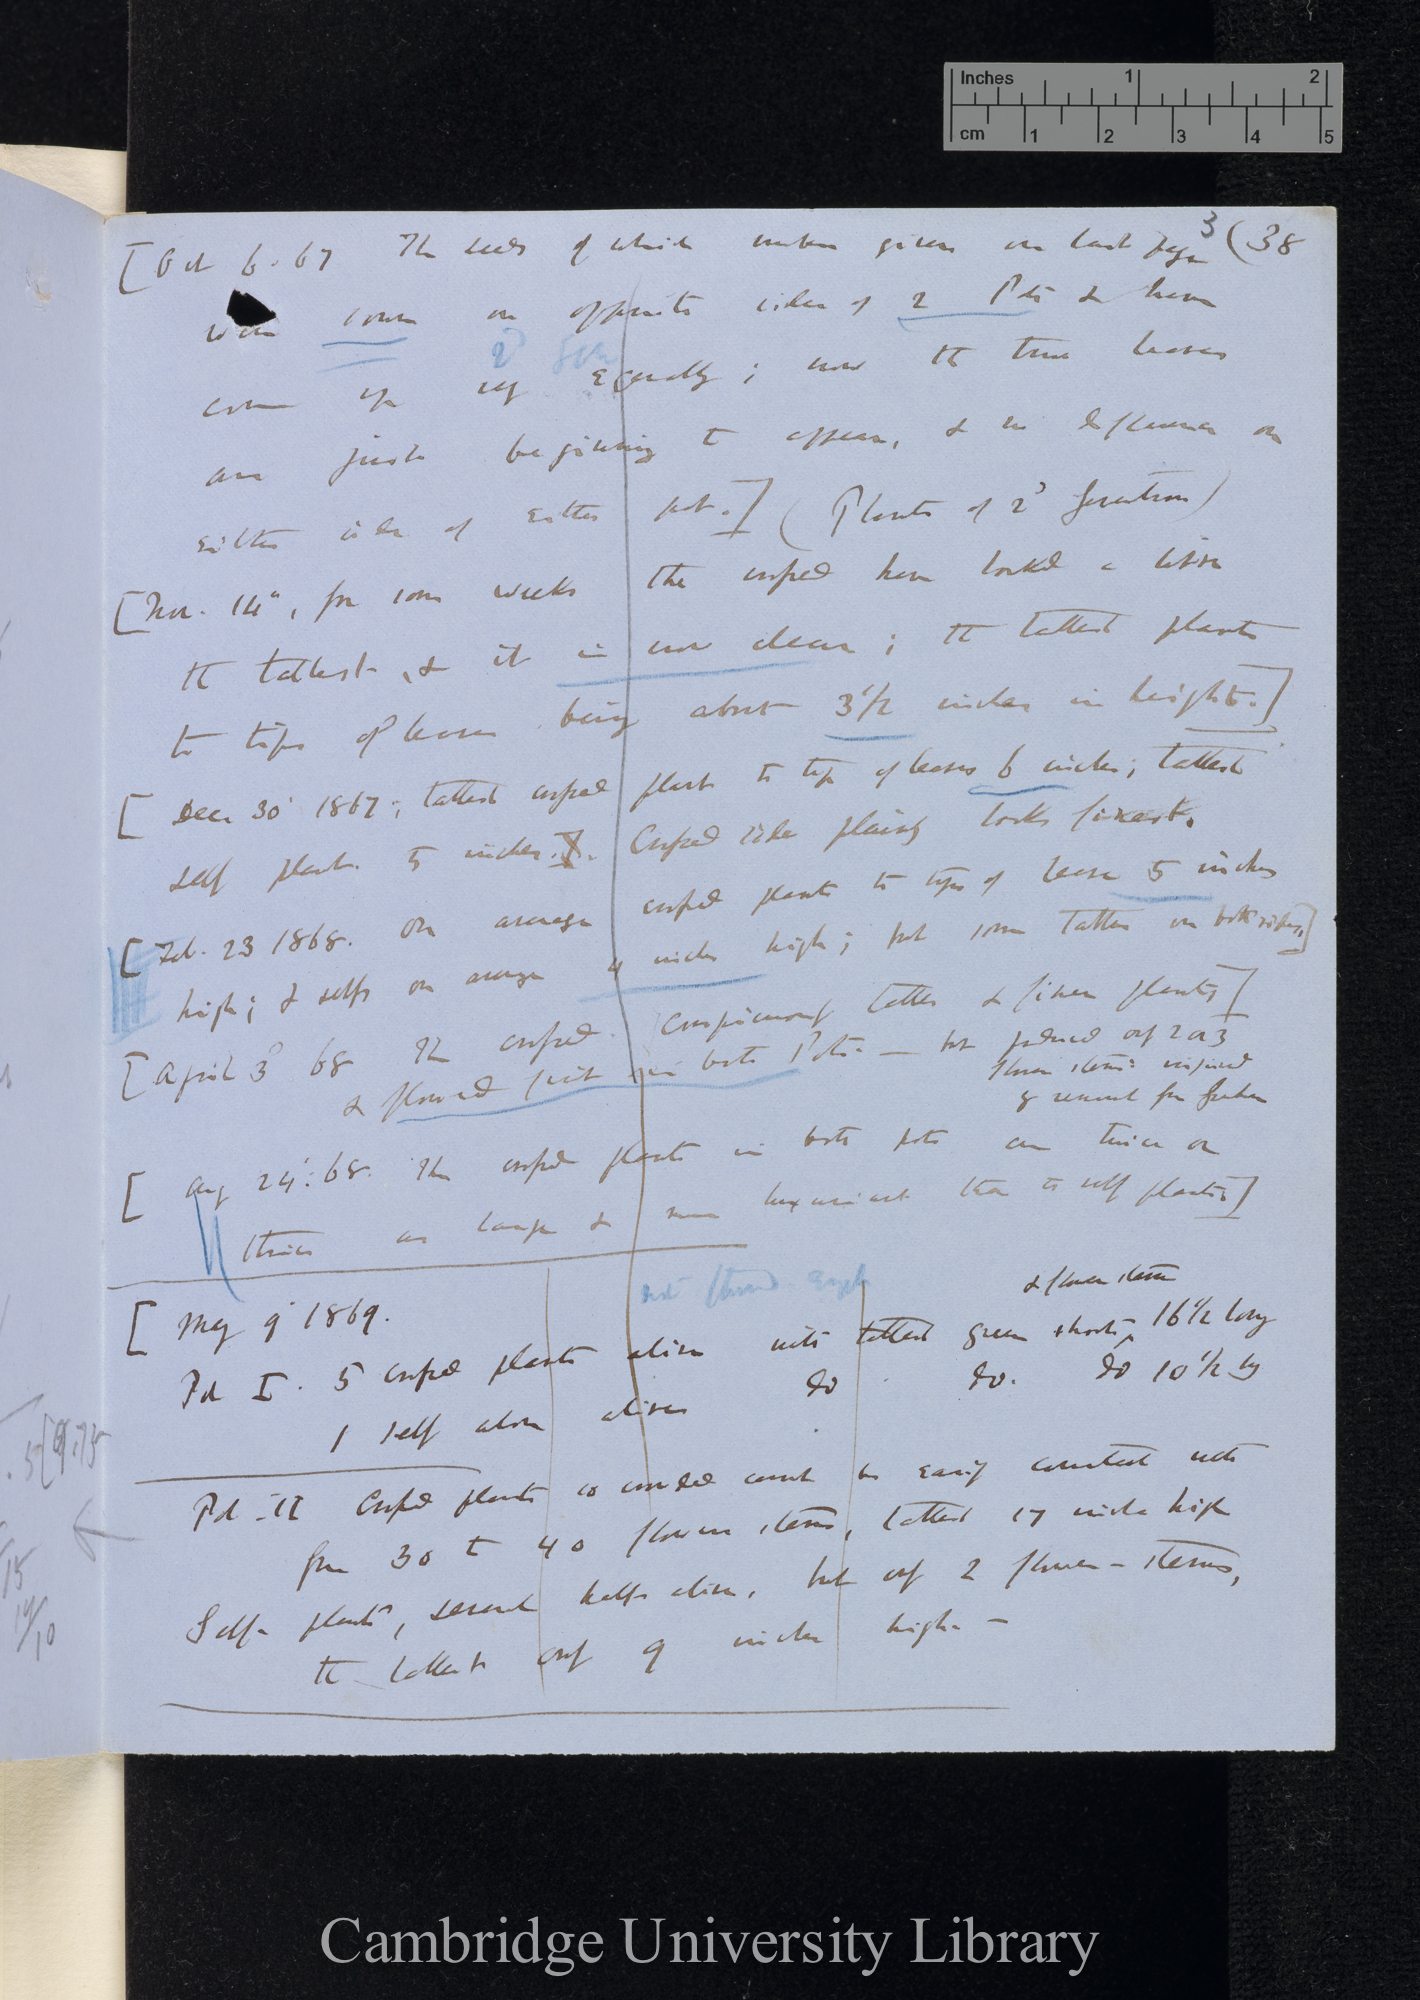 Inches 1 2
cm 1 2 3 4 5
3 (38
[Oct 6. 67 The seeds of which were given on last page
were sown on opposite sides of 2 Pots & have
2d Gen
come up very equally; now the true leaves
are just beginning to appear, & no difference on
either side of either pot.] (Plants of 2d Generation)
[Nov. 14th, for some weeks the crossed have looked a little
the tallest, & it is now clear; the tallest plants
to tips of leaves being about 3 1/2 inches in height.]
[Dec 30th 1867; tallest crossed plant to tip of leaves 6 inches; tallest
self plant 5 inches. Crossed side plainly looks finest.
[Feb. 23 1868. On average crossed plants to tips of leaves 5 inches
high; & selfs on average 4 inches high; but some taller on both sides.]
[April 3d 68 The crossed conspicuously taller & finer plants]
& flowered first in both Pots. — but produced only 2 or 3
flower stems
[Aug 24th. 68. The crossed plants in both pots are twice or
thrice as large & more luxuriant than the self plants]
not flowered enough
[May 9th 1869.
& flower stem
Pot I. 5 crossed plants alive with tallest green shoots 16 1/2 long
1 self alone alive do do. do 10 1/2
Pot II Crossed plants so crowded cannot be easily counted with
from 30 to 40 flower stems, tallest 17 inches high
Self-plants, several selfs alive, but only 2 flower-stems,
the tallest only 9 inches high. —
15
14/10
Cambridge University Library